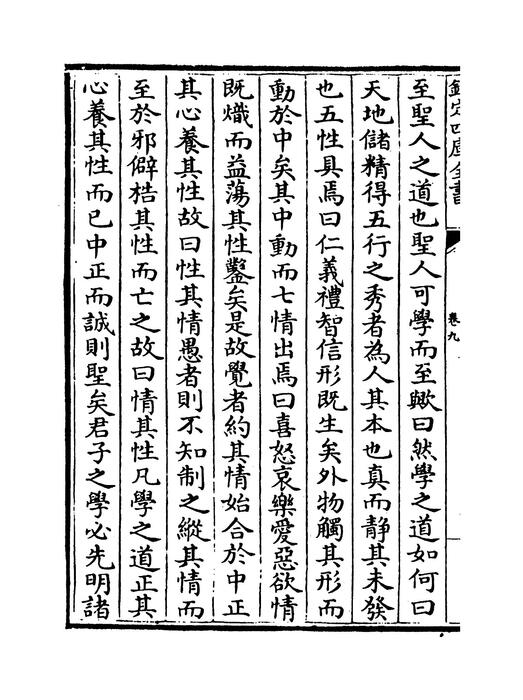 欽定四庫全書
卷九
至聖人之道也聖人可學而至歟曰然學之道如何曰
天地儲精得五行之秀者為人其本也真而静其未發
也五性具焉曰仁義禮智信形既生矣外物觸其形而
動於中矣其中動而七情出焉曰喜怒哀樂愛惡欲情
既熾而益蕩其性鑿矣是故覺者約其情始合於中正
其心養其性故曰性其情愚者則不知制之縱其情而
至於邪僻梏其性而亡之故曰情其性凡學之道正其
心養其性而已中正而誠則聖矣君子之學必先明諸